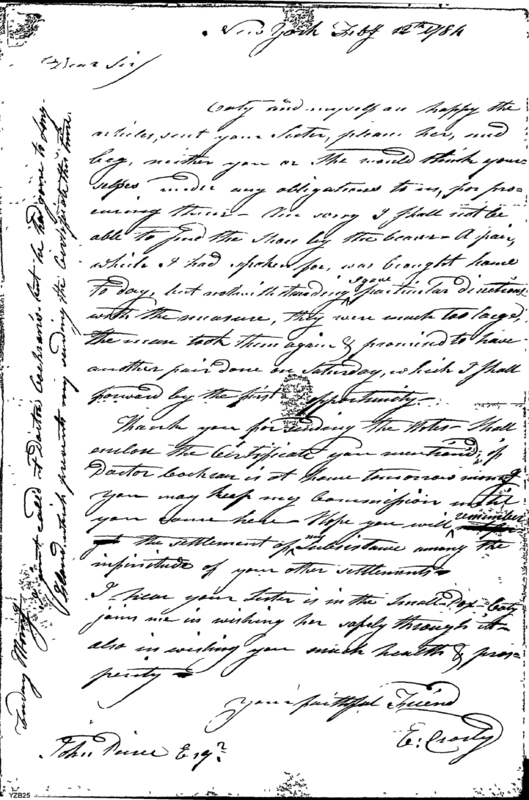 New York Feby 12th 1784
Dear Sir
Caty and myself are happy the
articles, sent your Sister, please her, and
beg, neither you or She would think your-
selves under any obligations to us, for pro-
curing them - Am sorry I shall not be
able to send the Shoes by the bearer - A pair,
which I had spoken for, was brought home
to day, but notwithstanding I gave particular directions
with the measure, they were much too large,
the man took them again & promised to have
another pair done on Saturday, which I shall
forward by the first opportunity -
Thank you for sending the Notes - Shall
enclose the Certificate you mentioned, if
Doctor Cochran is at home tomorrow morng
you may keep my Commission until
you come here - Hope you will remember
the settlement of my Subsistance among the
infinitude of your other settlements
I hear your Sister is in the Small-Pox - Caty
joins me in wishing her safely through it -
also in wishing you much health & pros-
perity -
Your faithful Friend
E: Crosby
John Pierce Esqr.
Tuesday Morng
I just called at Doctor Cochran's - but he had gone to Long-
Island, which prevents my sending the Certificate this time.
YZB25